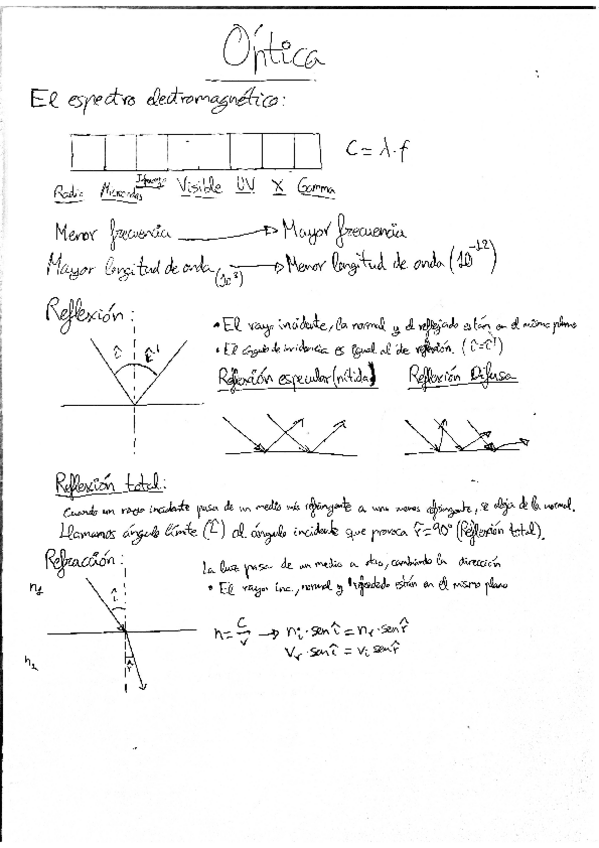 Óptica
El espectro electromagnético:
C = λ·f
Radio Microondas Infrarrojo Visible UV X Gamma
Menor frecuencia → Mayor frecuencia
Mayor longitud de onda (10³) → Menor longitud de onda (10⁻¹²)
Reflexión:
• El rayo incidente, la normal y el reflejado están en el mismo plano
• El ángulo de incidencia es igual al de reflexión. (î=î')
î î'
Reflexión especular (nítida) Reflexión Difusa
Reflexión total:
Cuando un rayo incidente pasa de un medio más refringente a uno menos refringente, se aleja de la normal.
Llamamos ángulo límite (L̂) al ángulo incidente que provoca r̂=90° (Reflexión total).
Refracción:
La luz pasa de un medio a otro, cambiando la dirección
• El rayo inc., normal y refractado están en el mismo plano
n₁ î
n = c/v → nᵢ·sen î = nᵣ·sen r̂
vᵣ·sen î = vᵢ sen r̂
n₂ r̂